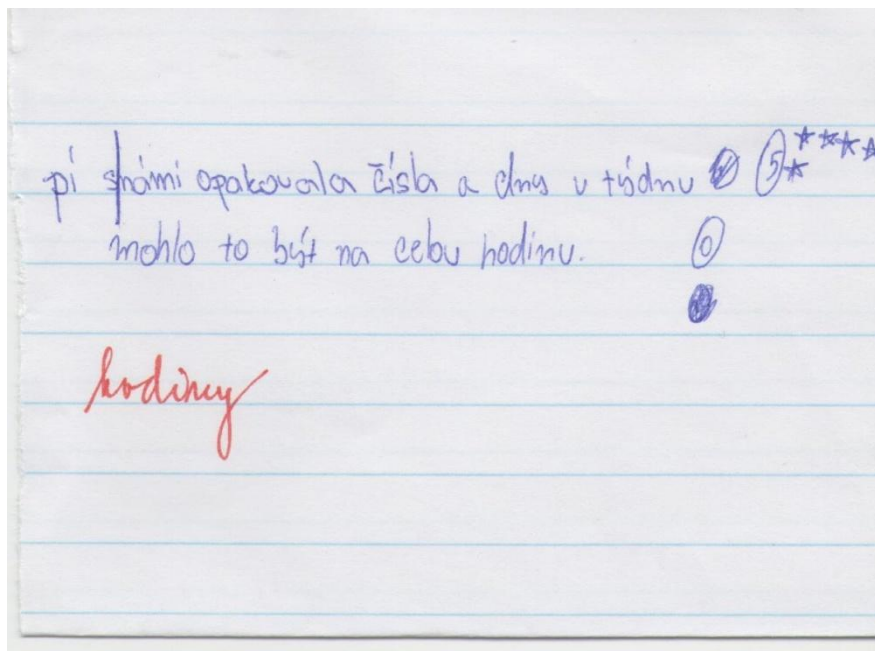 pí s námi opakovala čísla a dny v týdnu 5
mohlo to být na celou hodinu. 0
hodiny